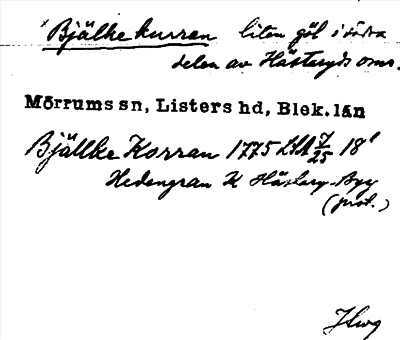 × Bjälkekurran liten göl i södra
delen av Hästaryds omr.
Mörrums sn, Listers hd, Blek. län
Bjällke Korran 1775 LSA 7/25 18¹
Hedengran K Hästary-Byy
(prot.)